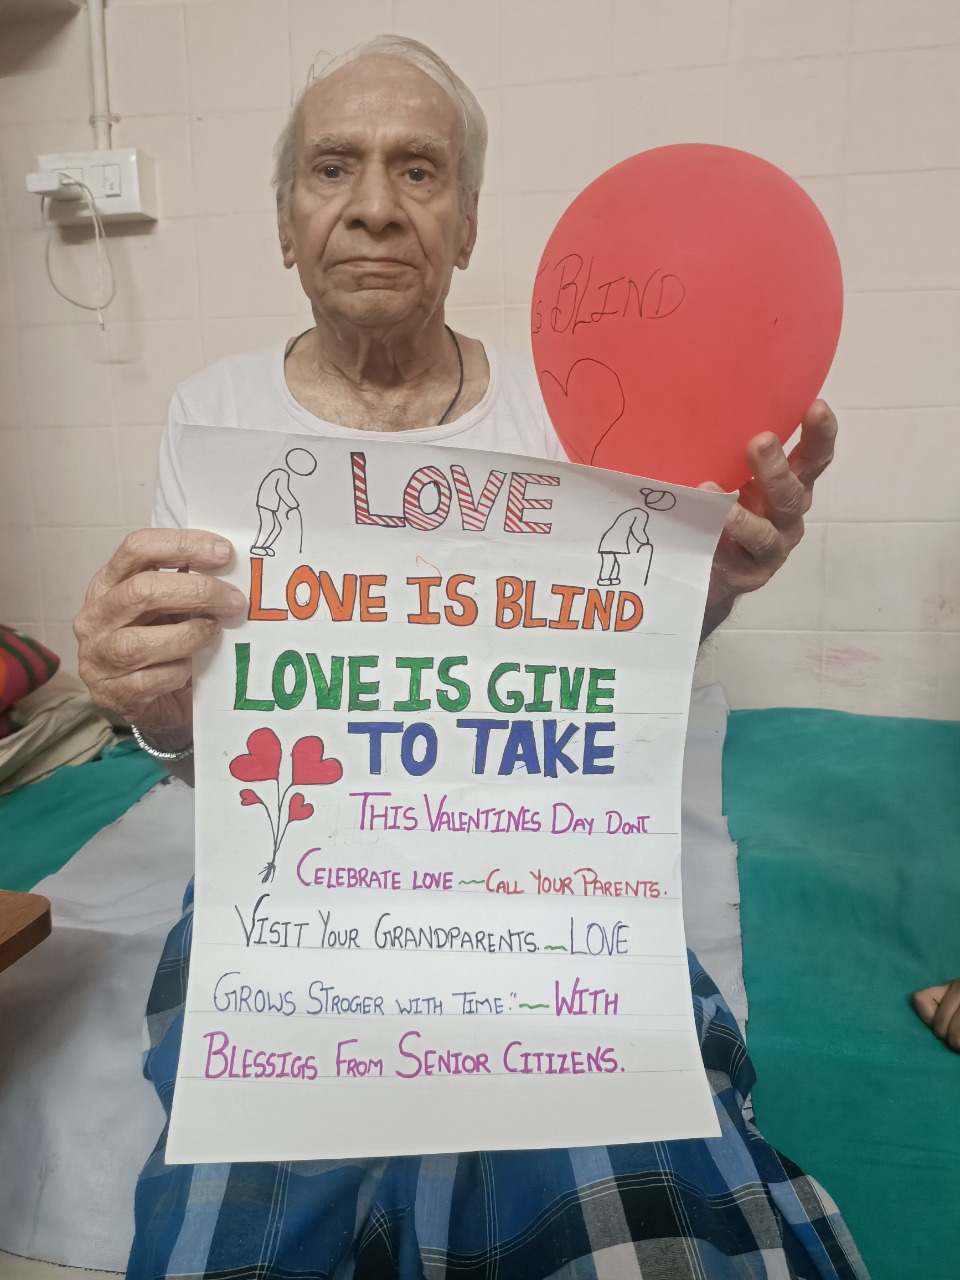 LOVE
LOVE IS BLIND
LOVE IS GIVE
TO TAKE
THIS VALENTINES DAY DONT
CELEBRATE LOVE ~ CALL YOUR PARENTS.
VISIT YOUR GRANDPARENTS. ~ LOVE
GROWS STROGER WITH TIME." ~ WITH
BLESSIGS FROM SENIOR CITIZENS.
BLIND